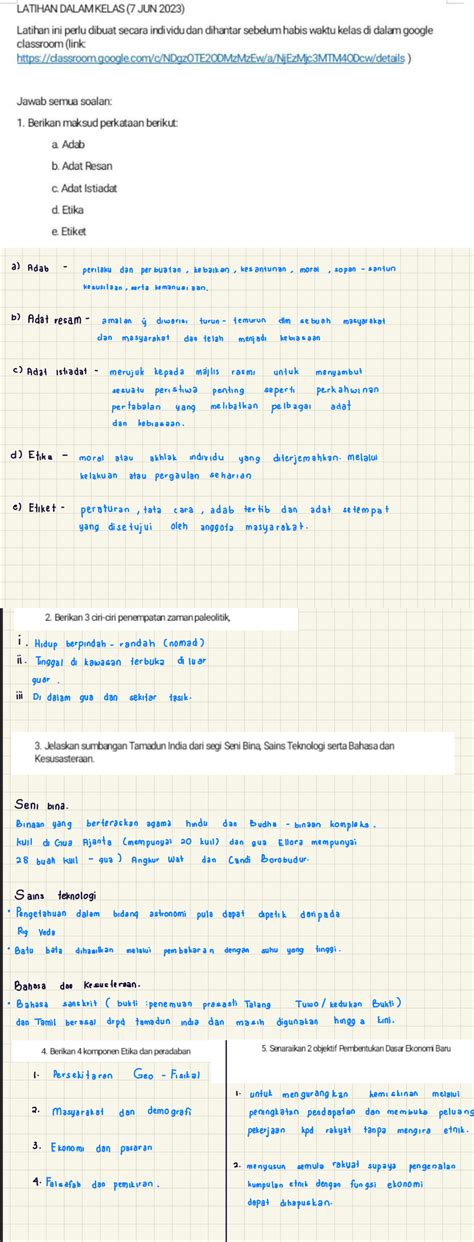 LATIHAN DALAM KELAS (7 JUN 2023)
Latihan ini perlu dibuat secara individu dan dihantar sebelum habis waktu kelas di dalam google
classroom (link:
https://classroom.google.com/c/NDgzOTE2ODMzMzEw/a/NjEzMjc3MTM4ODcw/details )
Jawab semua soalan:
1. Berikan maksud perkataan berikut:
a. Adab
b. Adat Resan
c. Adat Istiadat
d. Etika
e. Etiket
a) Adab - perilaku dan perbuatan, kebaikan, kesantunan, moral, sopan-santun
kesusilaan, serta kemanusiaan.
b) Adat resam - amalan yg diwarisi turun-temurun dlm sebuah masyarakat
dan masyarakat dan telah menjadi kebiasaan
c) Adat istiadat - merujuk kepada majlis rasmi untuk menyambut
sesuatu peristiwa penting seperti perkahwinan
pertabalan yang melibatkan pelbagai adat
dan kebiasaan.
d) Etika - moral atau akhlak individu yang diterjemahkan melalui
kelakuan atau pergaulan seharian
e) Etiket - peraturan, tata cara, adab tertib dan adat setempat
yang disetujui oleh anggota masyarakat.
2. Berikan 3 ciri-ciri penempatan zaman paleolitik,
i. Hidup berpindah-randah (nomad)
ii. Tinggal di kawasan terbuka di luar
guar.
iii Di dalam gua dan sekitar tasik.
3. Jelaskan sumbangan Tamadun India dari segi Seni Bina, Sains Teknologi serta Bahasa dan
Kesusasteraan.
Seni bina.
Binaan yang berteraskan agama hindu dan Budha - binaan kompleks.
Kuil di Gua Ajanta (mempunyai 20 kuil) dan gua Ellora mempunyai
28 buah kuil - gua) Angkur Wat dan Candi Borobudur.
Sains teknologi
• Pengetahuan dalam bidang astronomi pula dapat dipetik daripada
Rig Veda
• Batu bata dihasilkan melalui pembakaran dengan suhu yang tinggi.
Bahasa dan Kesusteraan.
• Bahasa sanskrit (bukti : penemuan prasasti Talang Tuwo / kedukan Bukit)
dan Tamil berasal drpd tamadun india dan masih digunakan hingga kini.
4. Berikan 4 komponen Etika dan peradaban
1. Persekitaran Geo - Fizikal
2. Masyarakat dan demografi
3. Ekonomi dan pasaran
4. Falsafah dan pemikiran.
5. Senaraikan 2 objektif Pembentukan Dasar Ekonomi Baru
1. untuk mengurangkan kemiskinan melalui
peningkatan pendapatan dan membuka peluang
pekerjaan kpd rakyat tanpa mengira etnik.
2. menyusun semula rakyat supaya pengenalan
kumpulan etnik dengan fungsi ekonomi
dapat dihapuskan.